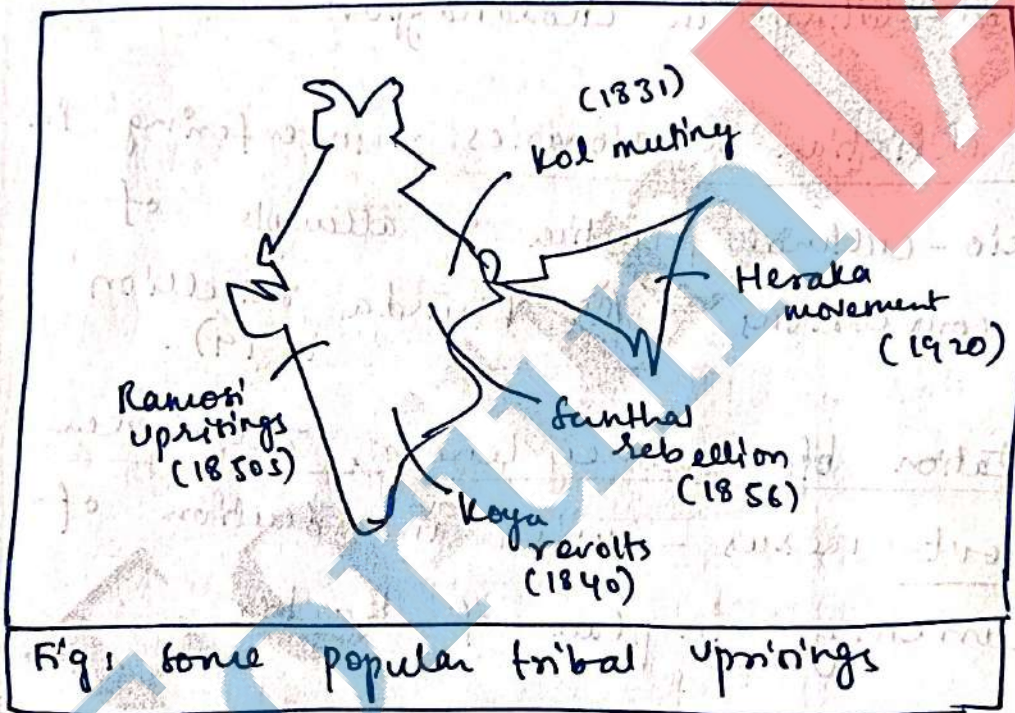 (1831)
Kol mutiny
Heraka
movement
(1920)
Ramosi
uprisings
(1850s)
Santhal
rebellion
(1856)
Koya
revolts
(1840)
Fig: Some popular tribal uprisings
ForumIA